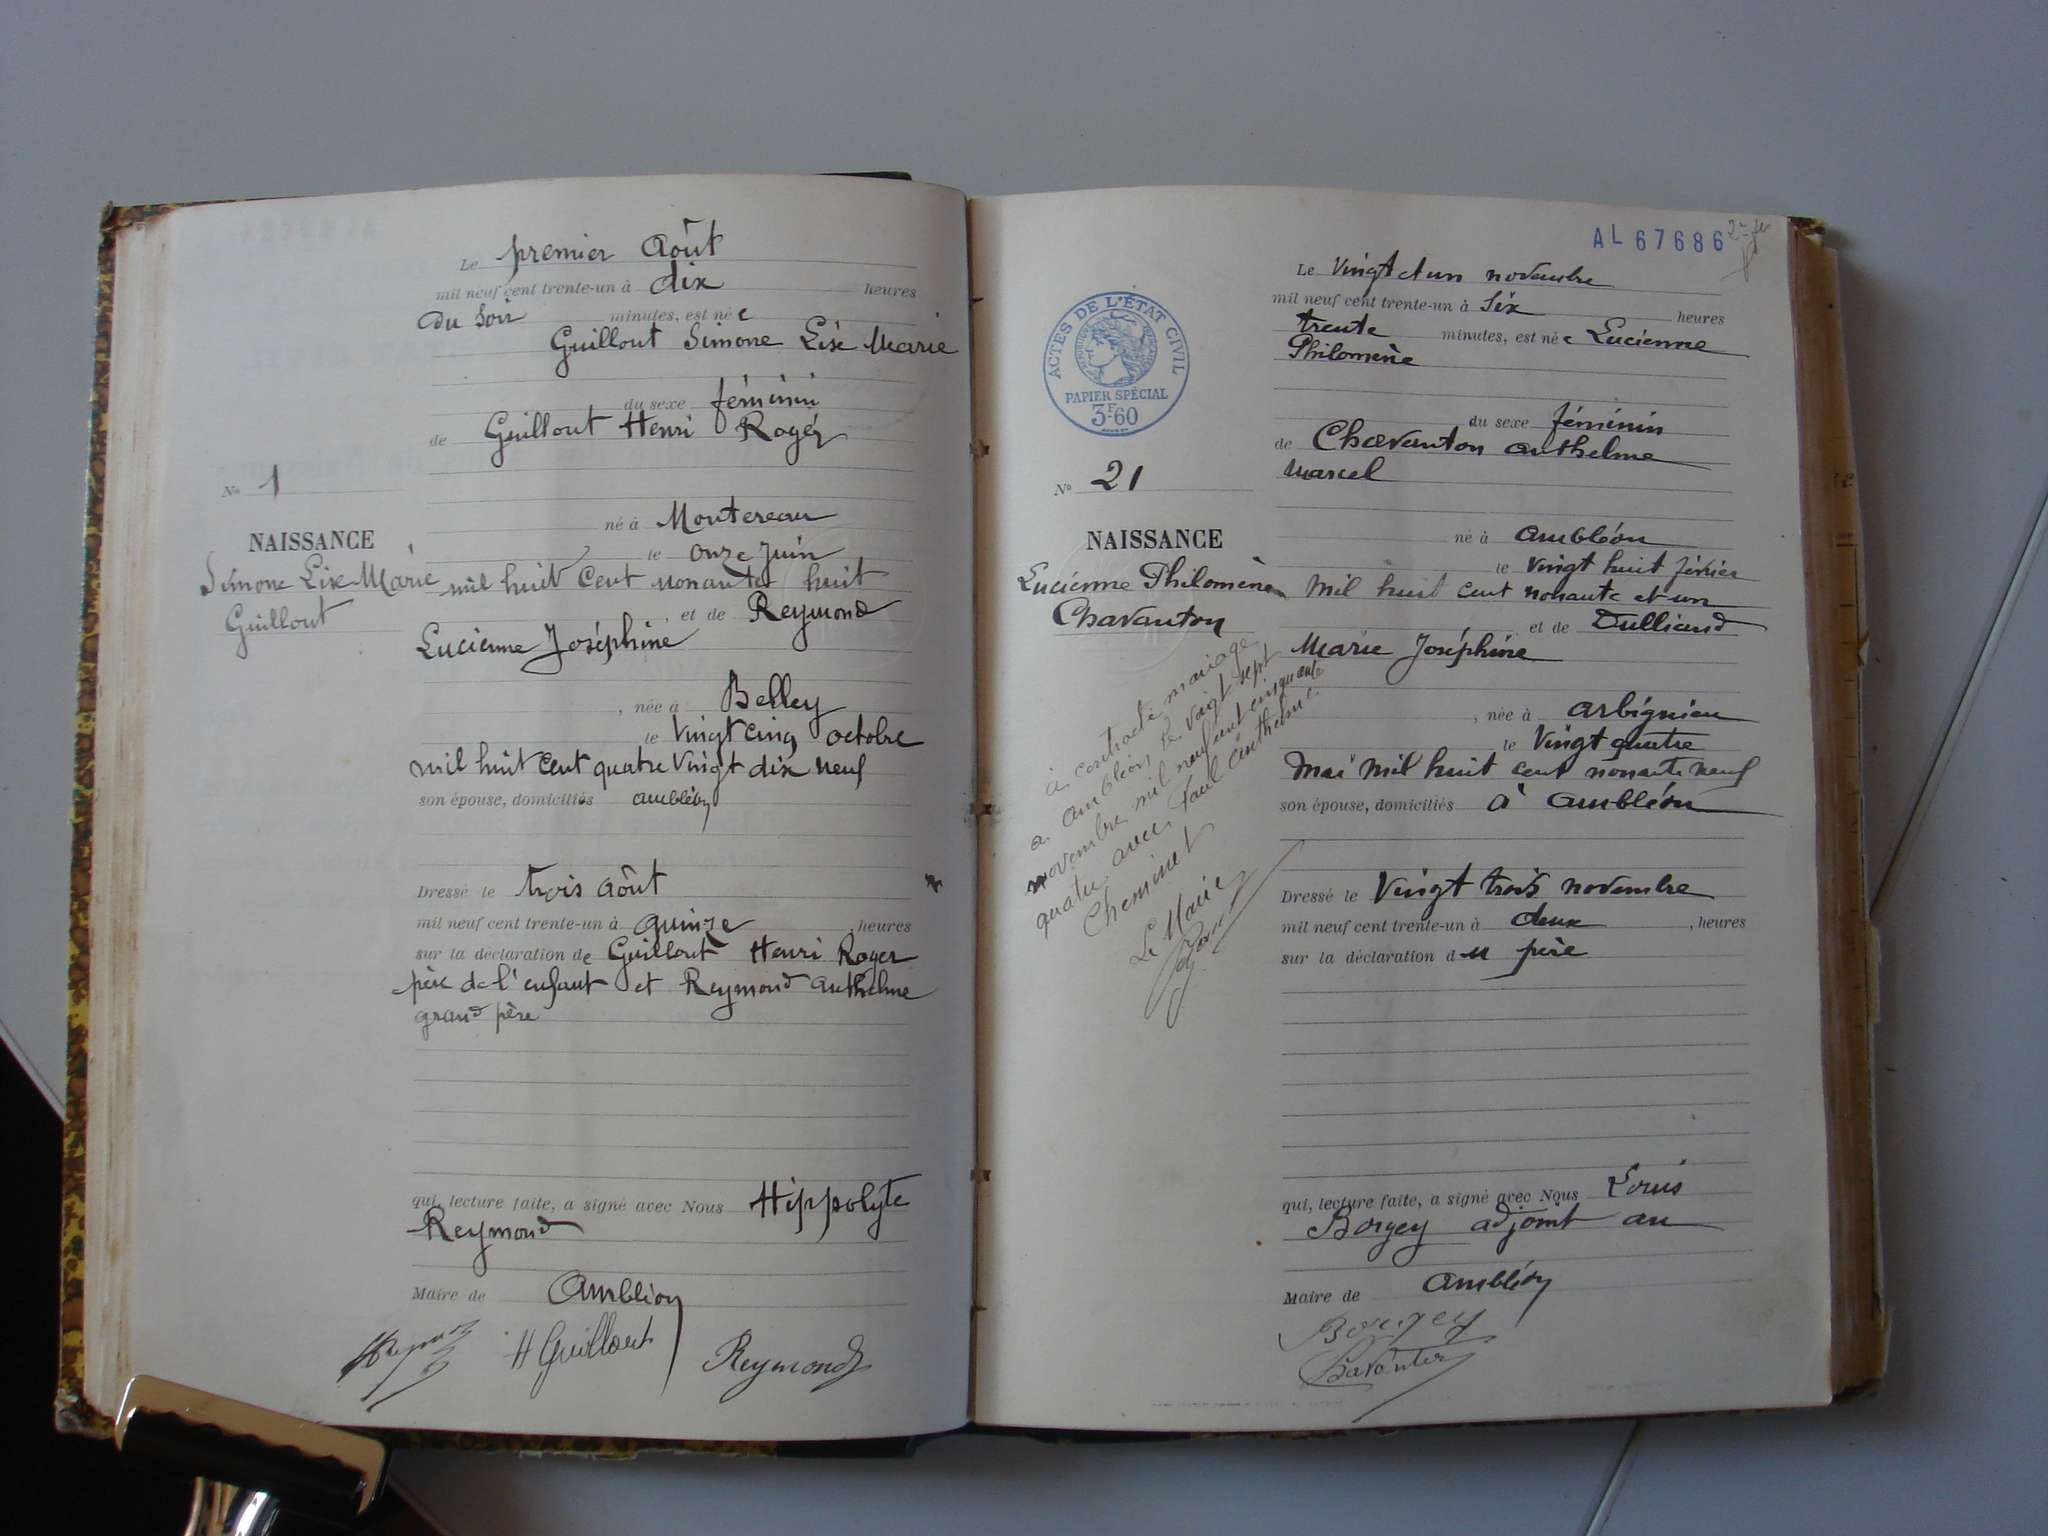 Le premier Août
mil neuf cent trente-un à dix heures
du soir minutes, est née
Guillout Simone Lise Marie
du sexe féminin
de Guillout Henri Roger
né à Montereau
le onze Juin
mil huit cent nonante huit
et de Reymond
Lucienne Joséphine
, née à Belley
le vingt cinq octobre
mil huit cent quatre vingt dix neuf
son épouse, domiciliés ambléon
Dressé le trois août
mil neuf cent trente-un à quinze heures
sur la déclaration de Guillout Henri Roger
père de l'enfant et Reymond anthelme
grand père
qui, lecture faite, a signé avec Nous Hippolyte
Reymond
Maire de Ambléon
H Guillout Reymond
No 1
NAISSANCE
Simone Lise Marie
Guillout
AL 67686
ACTES DE L'ÉTAT CIVIL
PAPIER SPÉCIAL
3F.60
No 21
NAISSANCE
Lucienne Philomène
Chavanton
à contracté mariage
a ambléon le vingt sept
novembre mil neuf cent cinquante
quatre avec Paul Anthelme
Cheminet
Le Maire
Le Vingt et un novembre
mil neuf cent trente-un à six heures
trente minutes, est née Lucienne
Philomène
du sexe féminin
de Chavanton anthelme
Marcel
né à ambléon
le vingt huit février
mil huit cent nonante et un
et de Dulliand
Marie Joséphine
, née à arbignieu
le vingt quatre
mai mil huit cent nonante neuf
son épouse, domiciliés à ambléon
Dressé le vingt trois novembre
mil neuf cent trente-un à deux , heures
sur la déclaration du père
qui, lecture faite, a signé avec Nous Louis
Borgey adjoint au
Maire de ambléon
Borgey